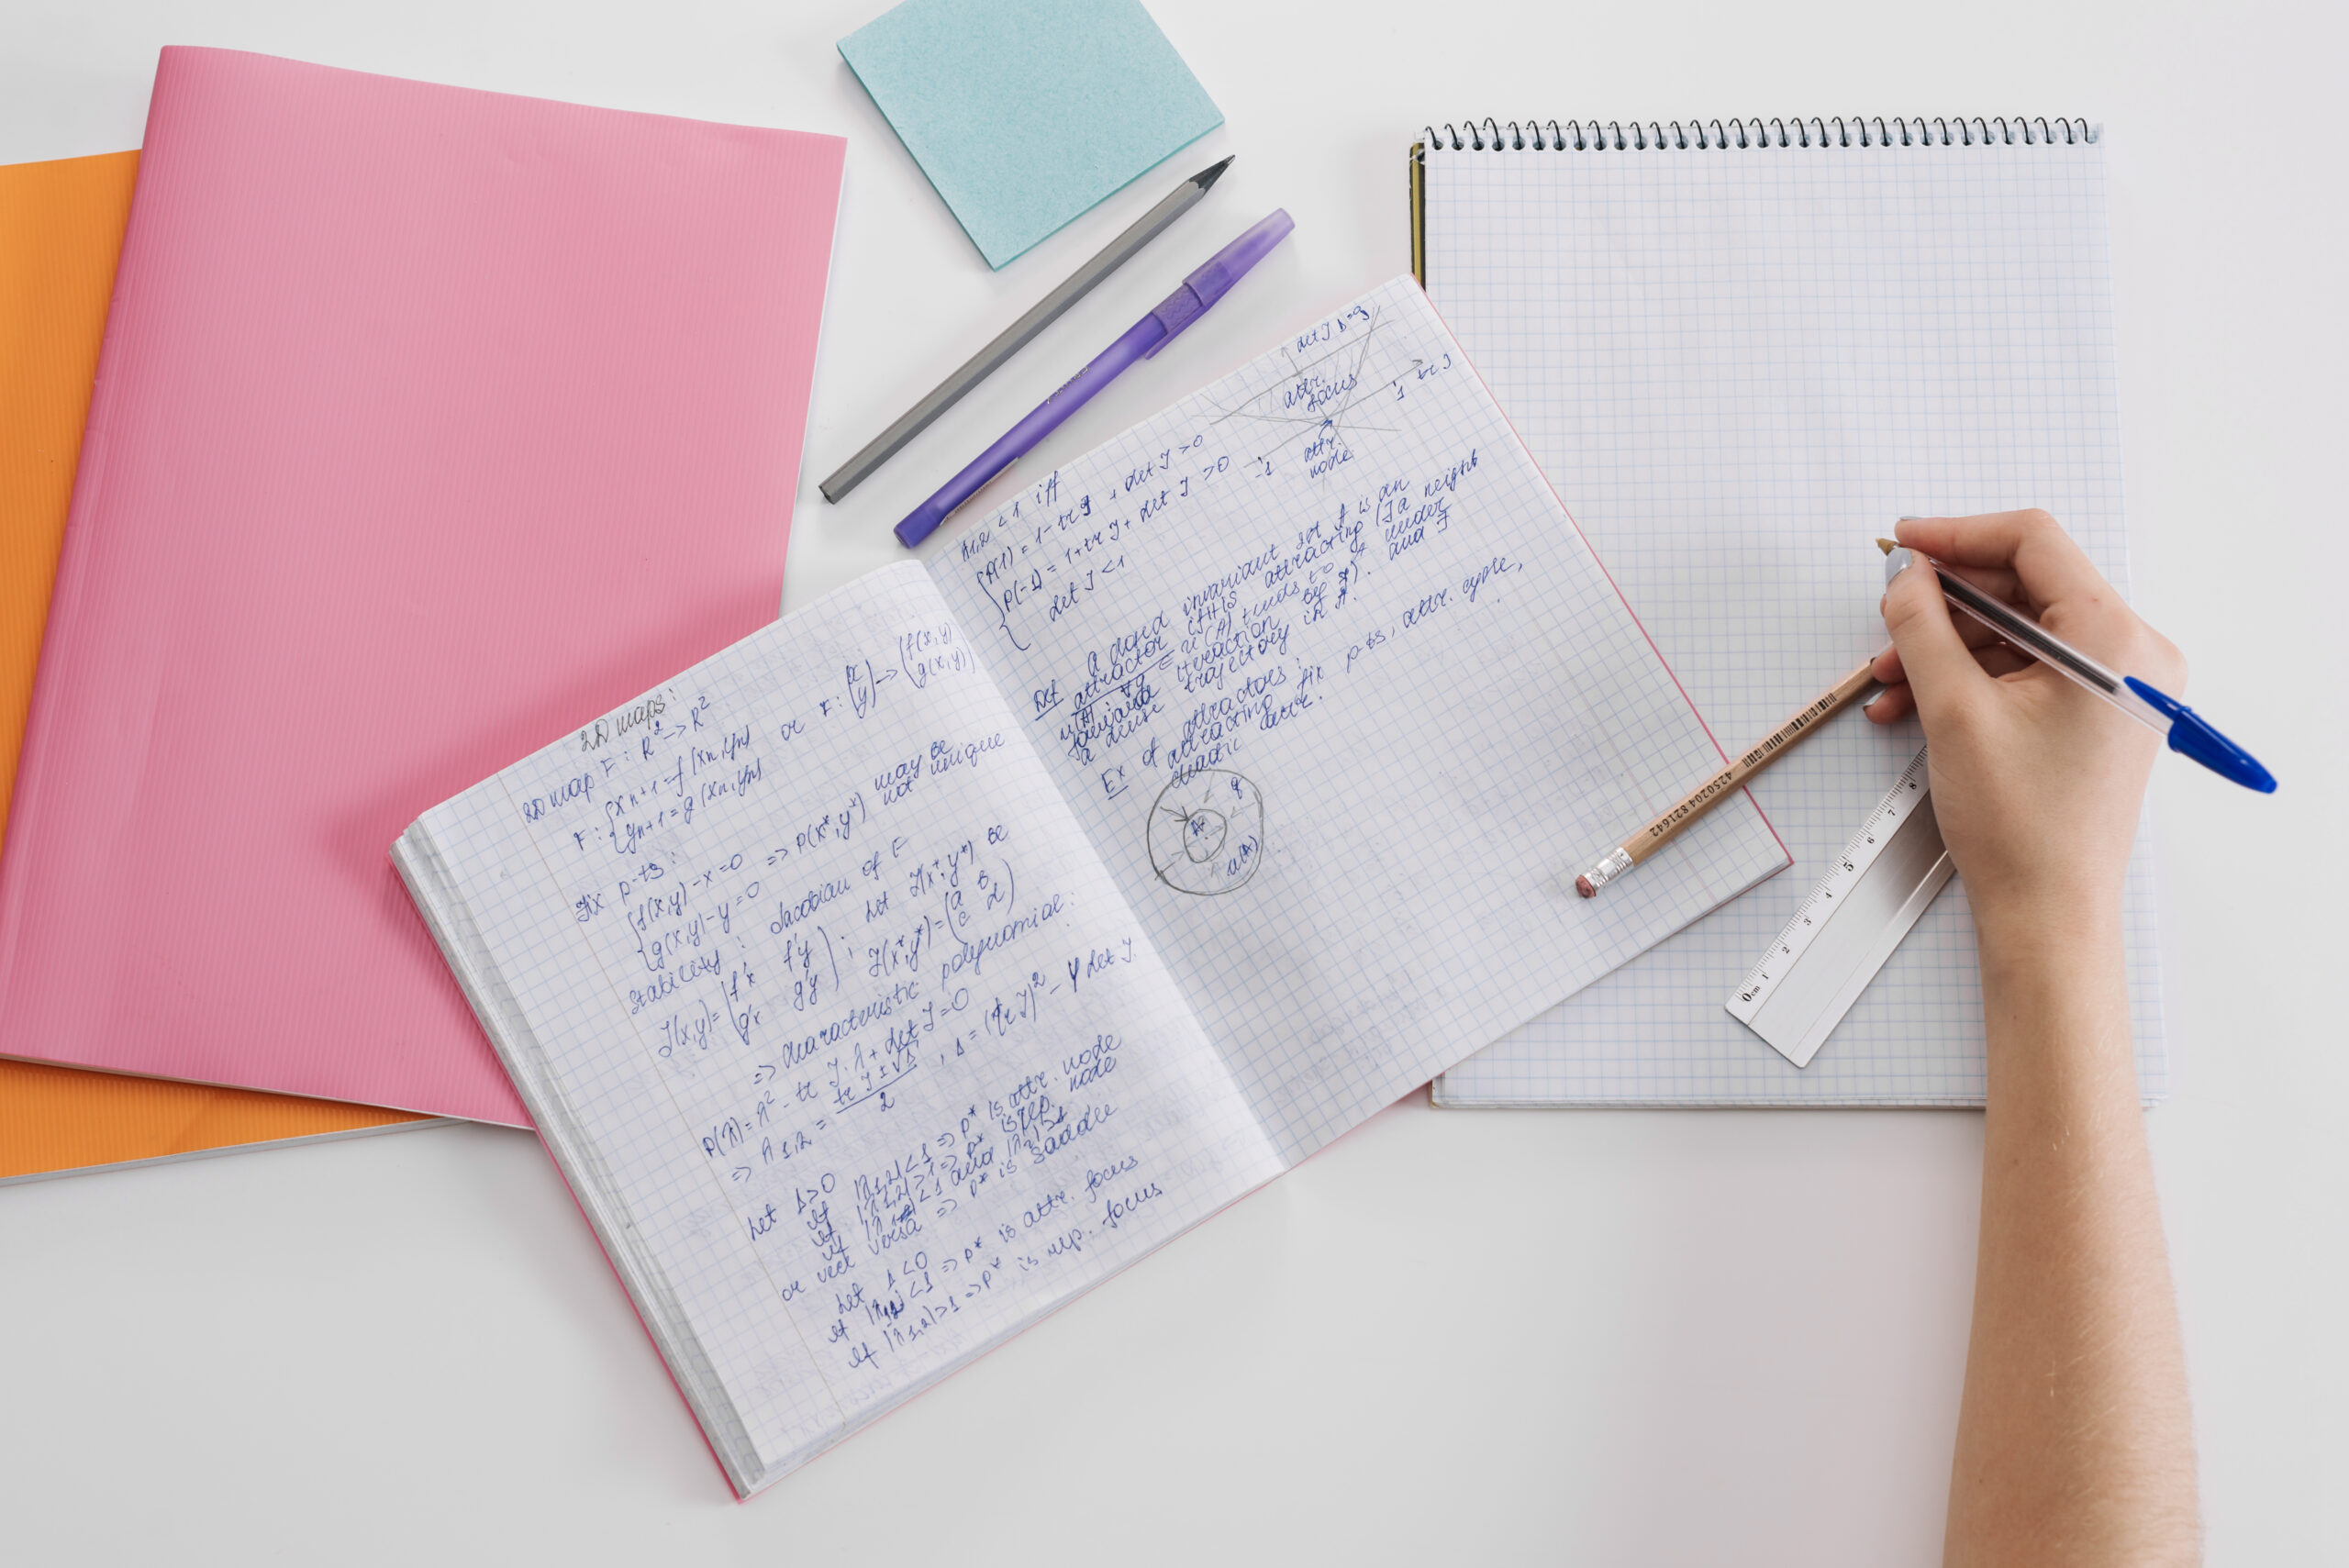 2D maps:
2D map F: R² -> R²
F: { xn+1 = f(xn,yn) or F: (x y) -> (f(x,y) g(x,y))
yn+1 = g(xn,yn)
Fix p-ts:
{ f(x,y) - x = 0 => P(x*,y*) may be
g(x,y) - y = 0 not unique
Stability: Jacobian of F
J(x,y) = (f'x f'y g'x g'y); Let J(x*,y*) be
J(x*,y*) = (a b c d)
=> characteristic polynomial:
P(λ) = λ² - tr J·λ + det J = 0
=> λ1,2 = (tr J ± √Δ)/2, Δ = (tr J)² - 4 det J.
Let Δ>0
if |λ1,2|<1 => p* is attr. node
if |λ1,2|>1 => p* is rep. node
if |λ1|<1 and |λ2|>1
or vice versa => p* is saddle
Let Δ<0
if |λ1,2|<1 => p* is attr. focus
if |λ1,2|>1 => p* is rep. focus
λ1,2 < 1 iff
{ P(1) = 1 - tr J + det J > 0
P(-1) = 1 + tr J + det J > 0
det J < 1
det J
attr.
focus
-1 1 tr J
attr.
node
Def A closed invariant set A is an
attractor if it is attracting (∃ a neighb
u(A): ∀q ∈ u(A) tends to A under
forward iteration by F). and ∃
a dense trajectory in A.
Ex of attractors:
attracting fix p-ts, attr. cycle,
chaotic attr.
q
A
u(A)
4250204821642
0cm 1 2 3 4 5 6 7 8